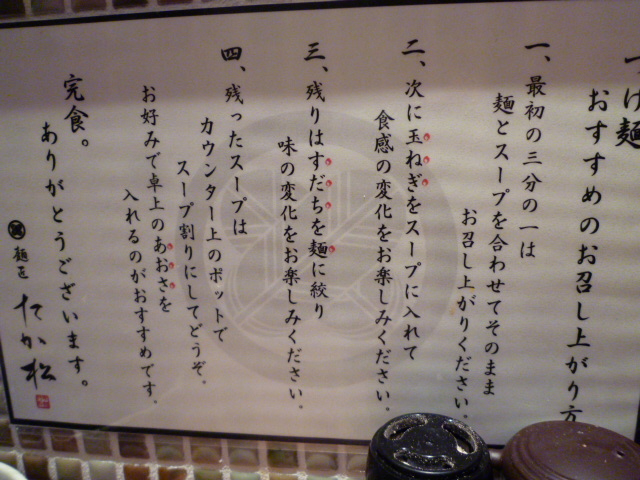 つけ麺
おすすめのお召し上がり方
一、最初の三分の一は
麺とスープを合わせてそのまま
お召し上がりください。
二、次に玉ねぎをスープに入れて
食感の変化をお楽しみください。
三、残りはすだちを麺に絞り
味の変化をお楽しみください。
四、残ったスープは
カウンター上のポットで
スープ割りにしてどうぞ。
お好みで卓上のあおさを
入れるのがおすすめです。
完食。
ありがとうございます。
麺匠 たか松